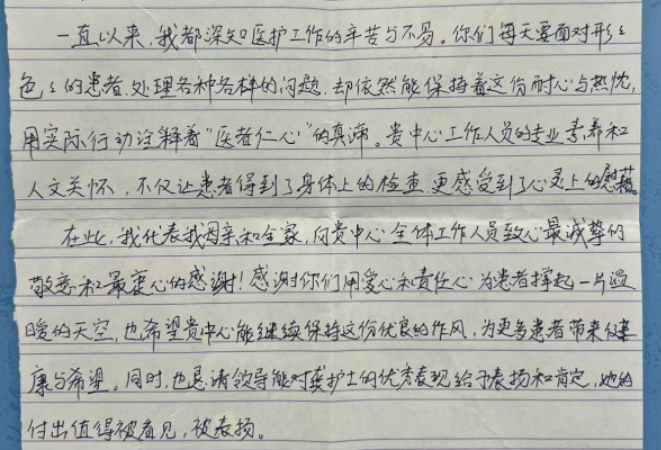 一直以来，我都深知医护工作的辛苦与不易。你们每天要面对形形
色色的患者，处理各种各样的问题，却依然能保持着这份耐心与热忱，
用实际行动诠释着“医者仁心”的真谛。贵中心工作人员的专业素养和
人文关怀，不仅让患者得到了身体上的检查，更感受到了心灵上的慰藉。
在此，我代表我母亲和全家，向贵中心全体工作人员致以最诚挚的
敬意和最衷心的感谢！感谢你们用爱心和责任心为患者撑起一片温
暖的天空，也希望贵中心能继续保持这份优良的作风，为更多患者带来健
康与希望。同时，也恳请领导能对龚护士的优秀表现给予表扬和肯定，她的
付出值得被看见，被表扬。